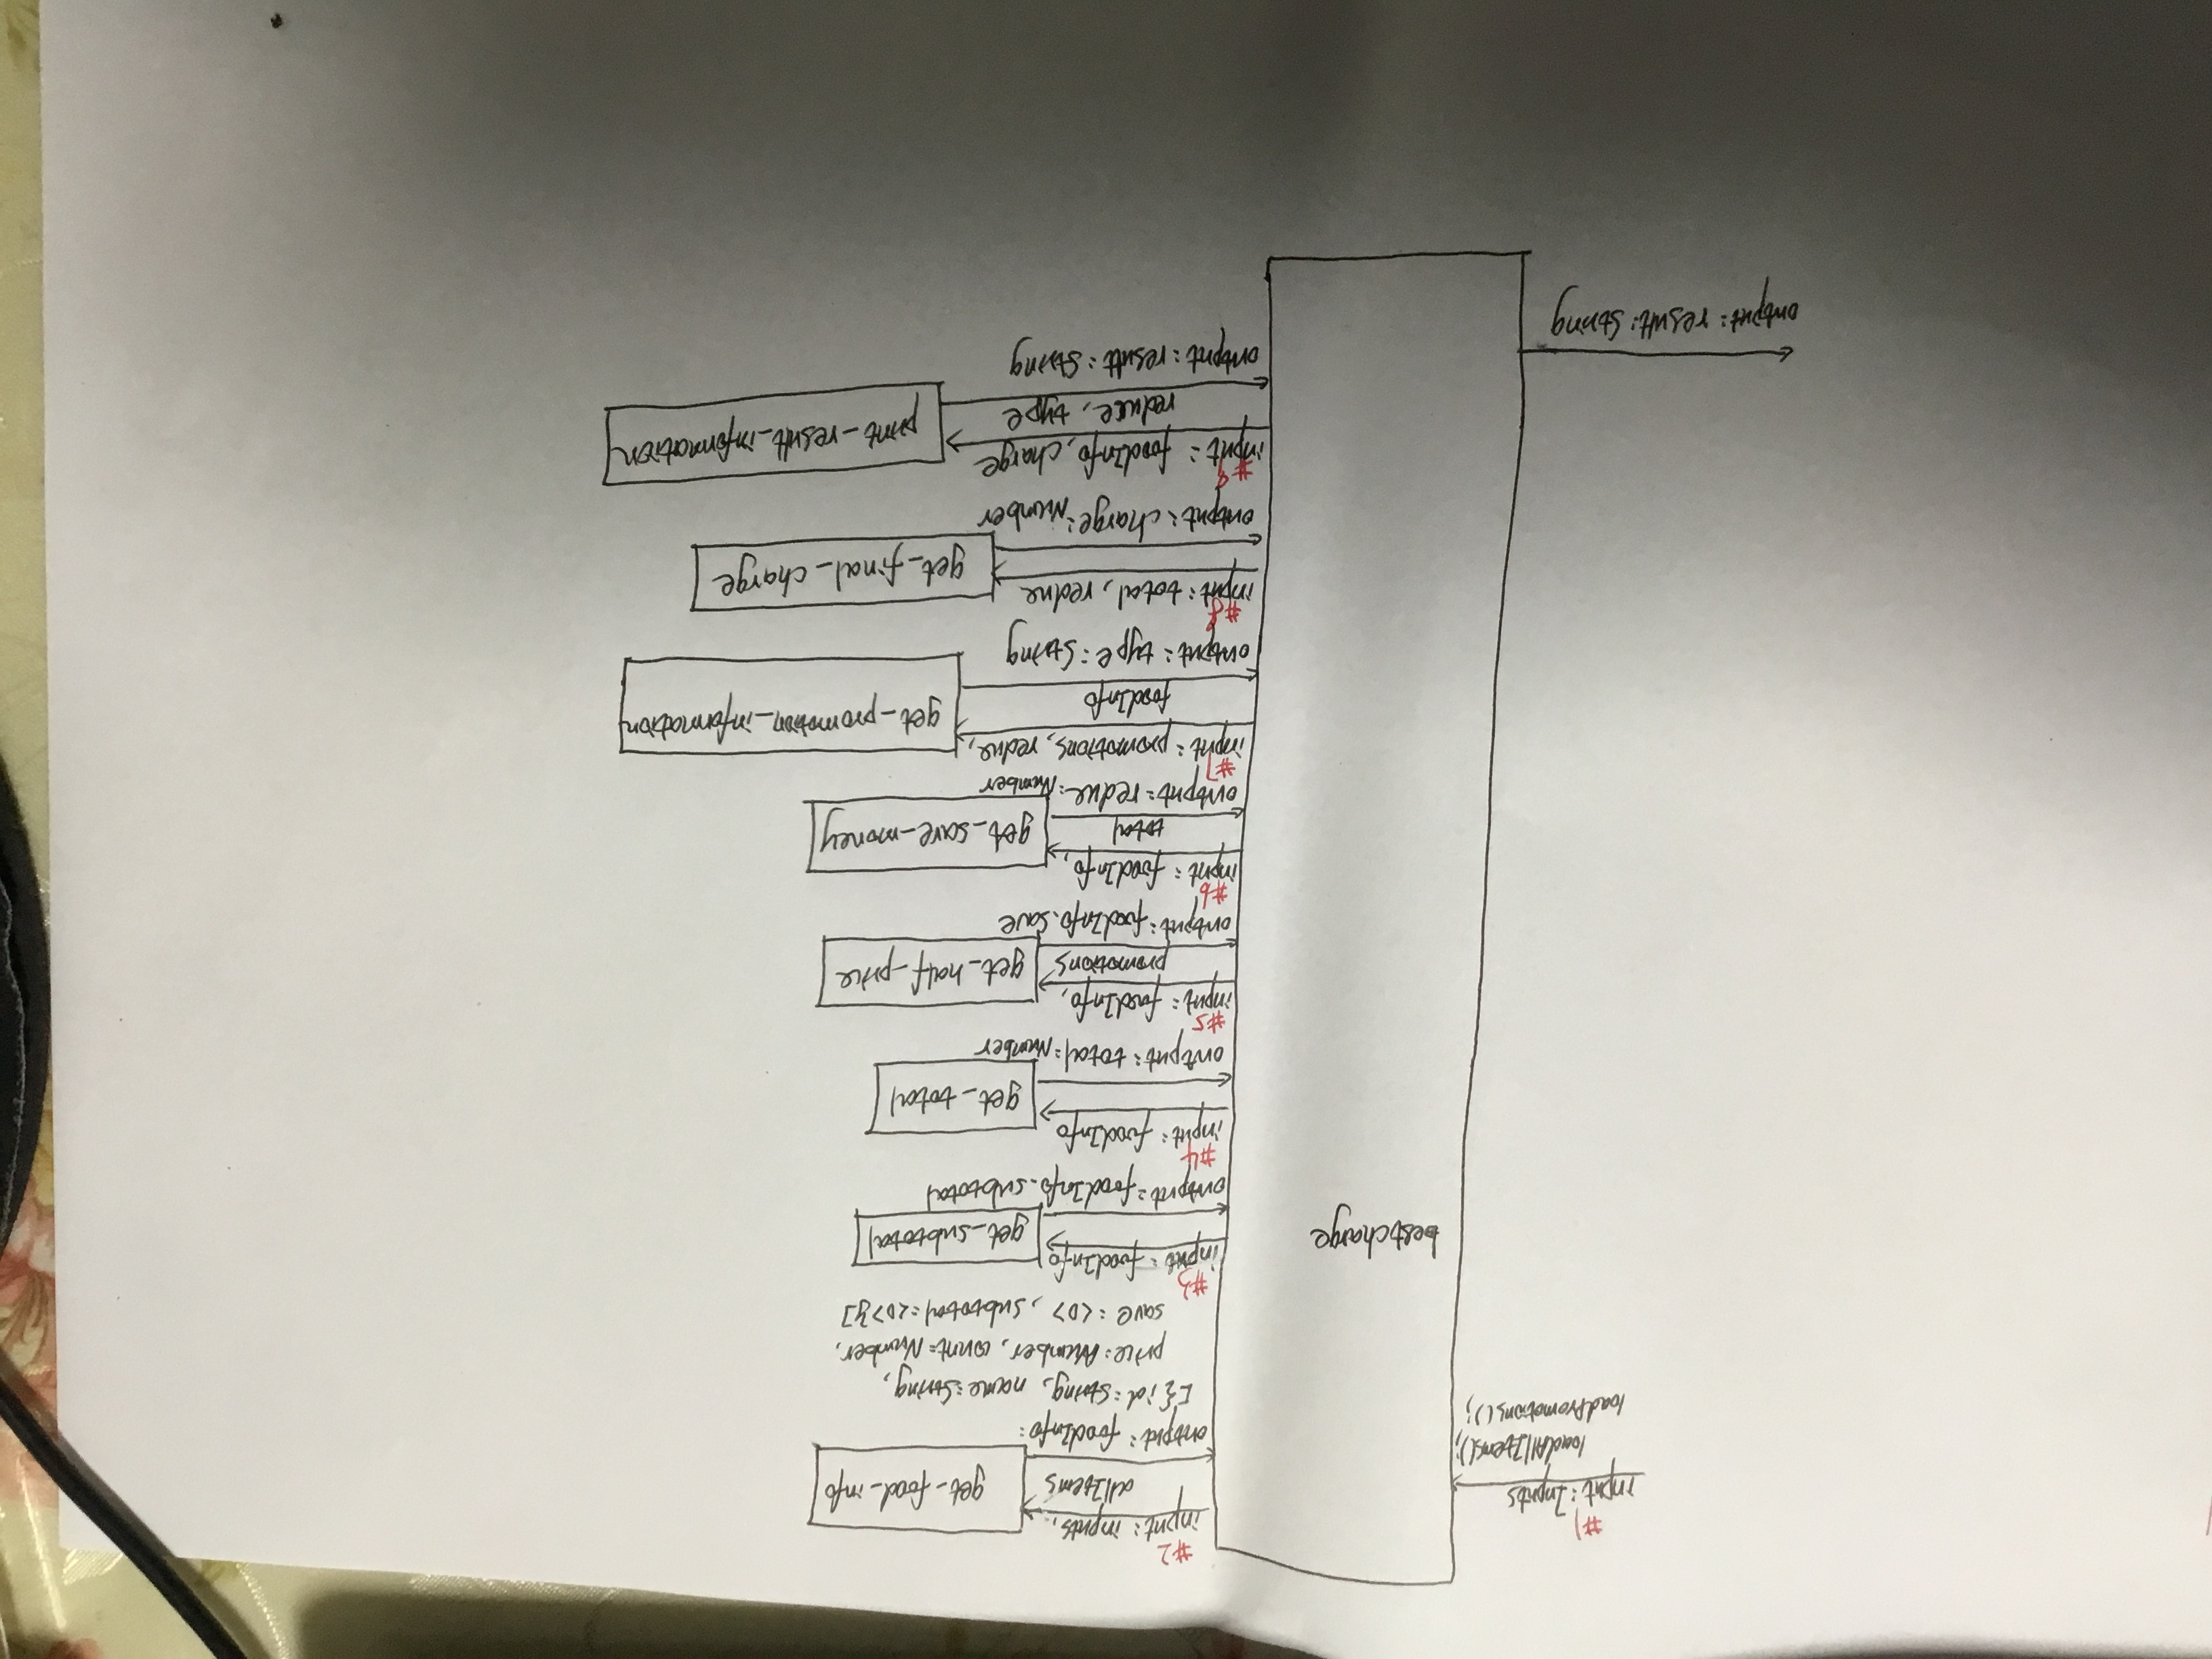 #1
input: Inputs
loadAllItems();
loadPromotions();
bestcharge
#2
input: inputs,
allItems
get_food_info
output: foodInfo:
[{id:String, name:String,
price:Number, count:Number,
save:<0>, subtotal:<0>}]
#3
input: foodInfo
get_subtotal
output: foodInfo.subtotal
#4
input: foodInfo
get_total
output: total:Number
#5
input: foodInfo,
promotions
get_half_price
output: foodInfo.save
#6
input: foodInfo,
total
get_save_money
output: redue:Number
#7
input: promotions, redue,
foodInfo
get_promotion_information
output: type:String
#8
input: total, redue
get_final_charge
output: charge:Number
#9
input: foodInfo, charge
reduce, type
print_result_information
output: result: String
output: result: String